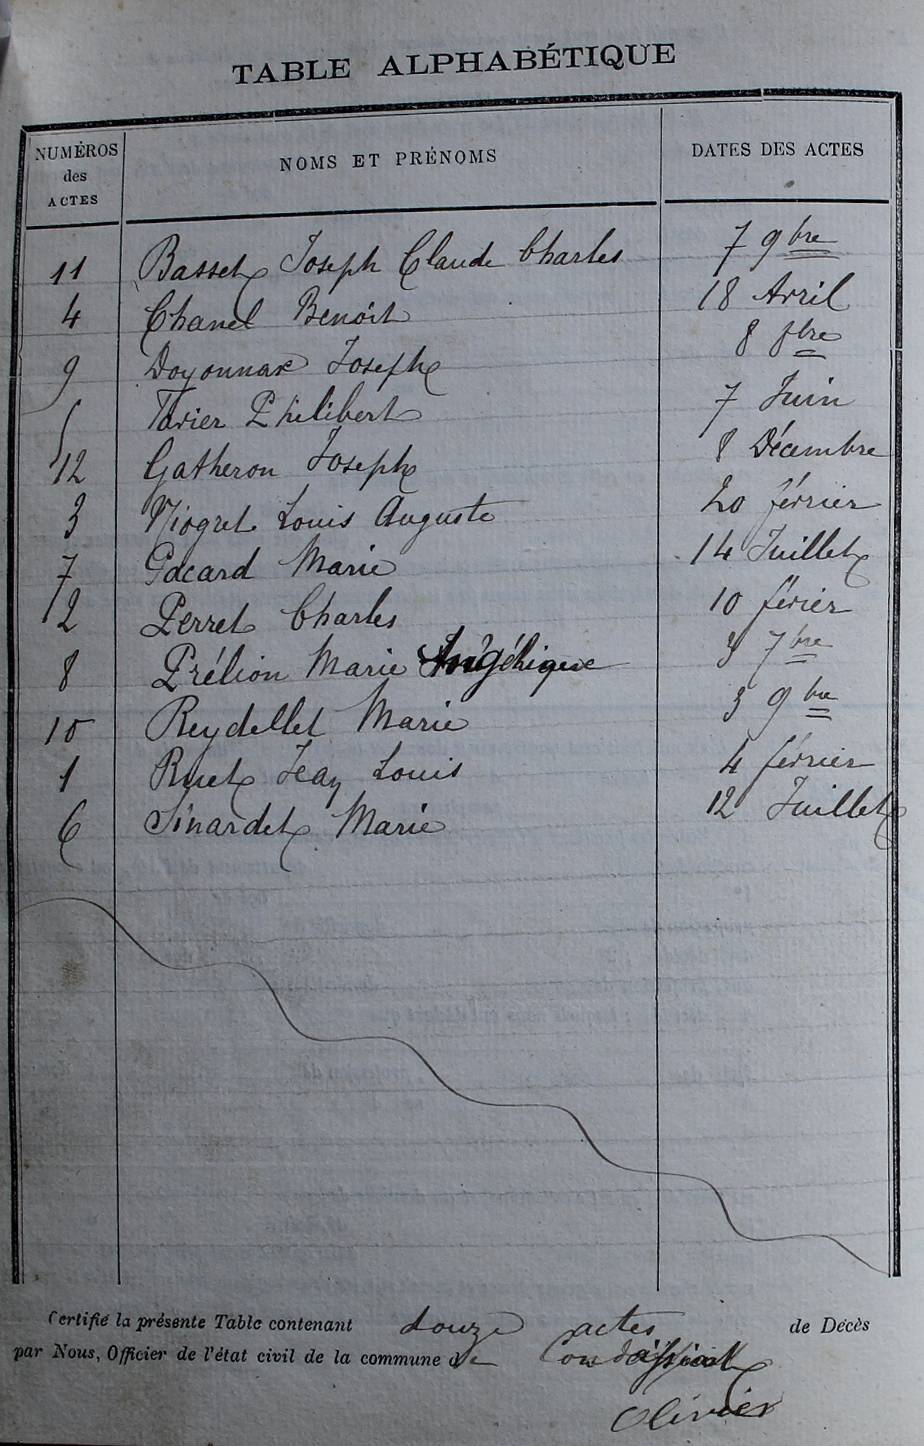 TABLE ALPHABÉTIQUE
NUMÉROS des ACTES NOMS ET PRÉNOMS DATES DES ACTES
11 Basset Joseph Claude Charles 7 9bre
4 Chanel Benoit 18 Avril
9 Doyonnax Joseph 8 8bre
5 Favier Philibert 7 Juin
12 Gatheron Joseph 8 Décembre
3 Niogret Louis Auguste 20 février
7 Pacard Marie 14 Juillet
2 Perret Charles 10 févier
8 Prélion Marie Angélique 3 7bre
10 Reydellet Marie 3 9bre
1 Ruet Jean Louis 4 février
6 Sinardet Marie 12 Juillet
Certifié la présente Table contenant douze actes de Décès
par Nous, Officier de l'état civil de la commune de Condeissiat
Olivier